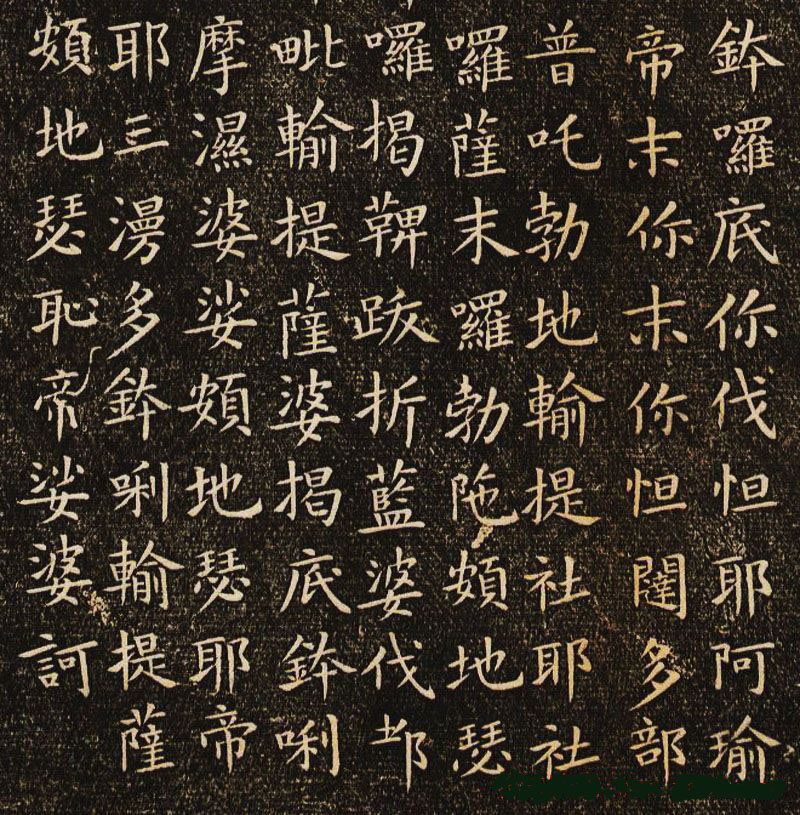 鉢囉底你伐怛耶阿瑜
帝末你末你怛闥多部
普吒勃地輸提社耶社
囉薩末囉勃陁頞地瑟
囉揭鞞跋折藍婆伐
毗輸提薩婆揭底鉢唎
摩濕婆娑頞地瑟耶帝
耶三漫多鉢唎輸提薩
頞地瑟恥帝娑婆訶